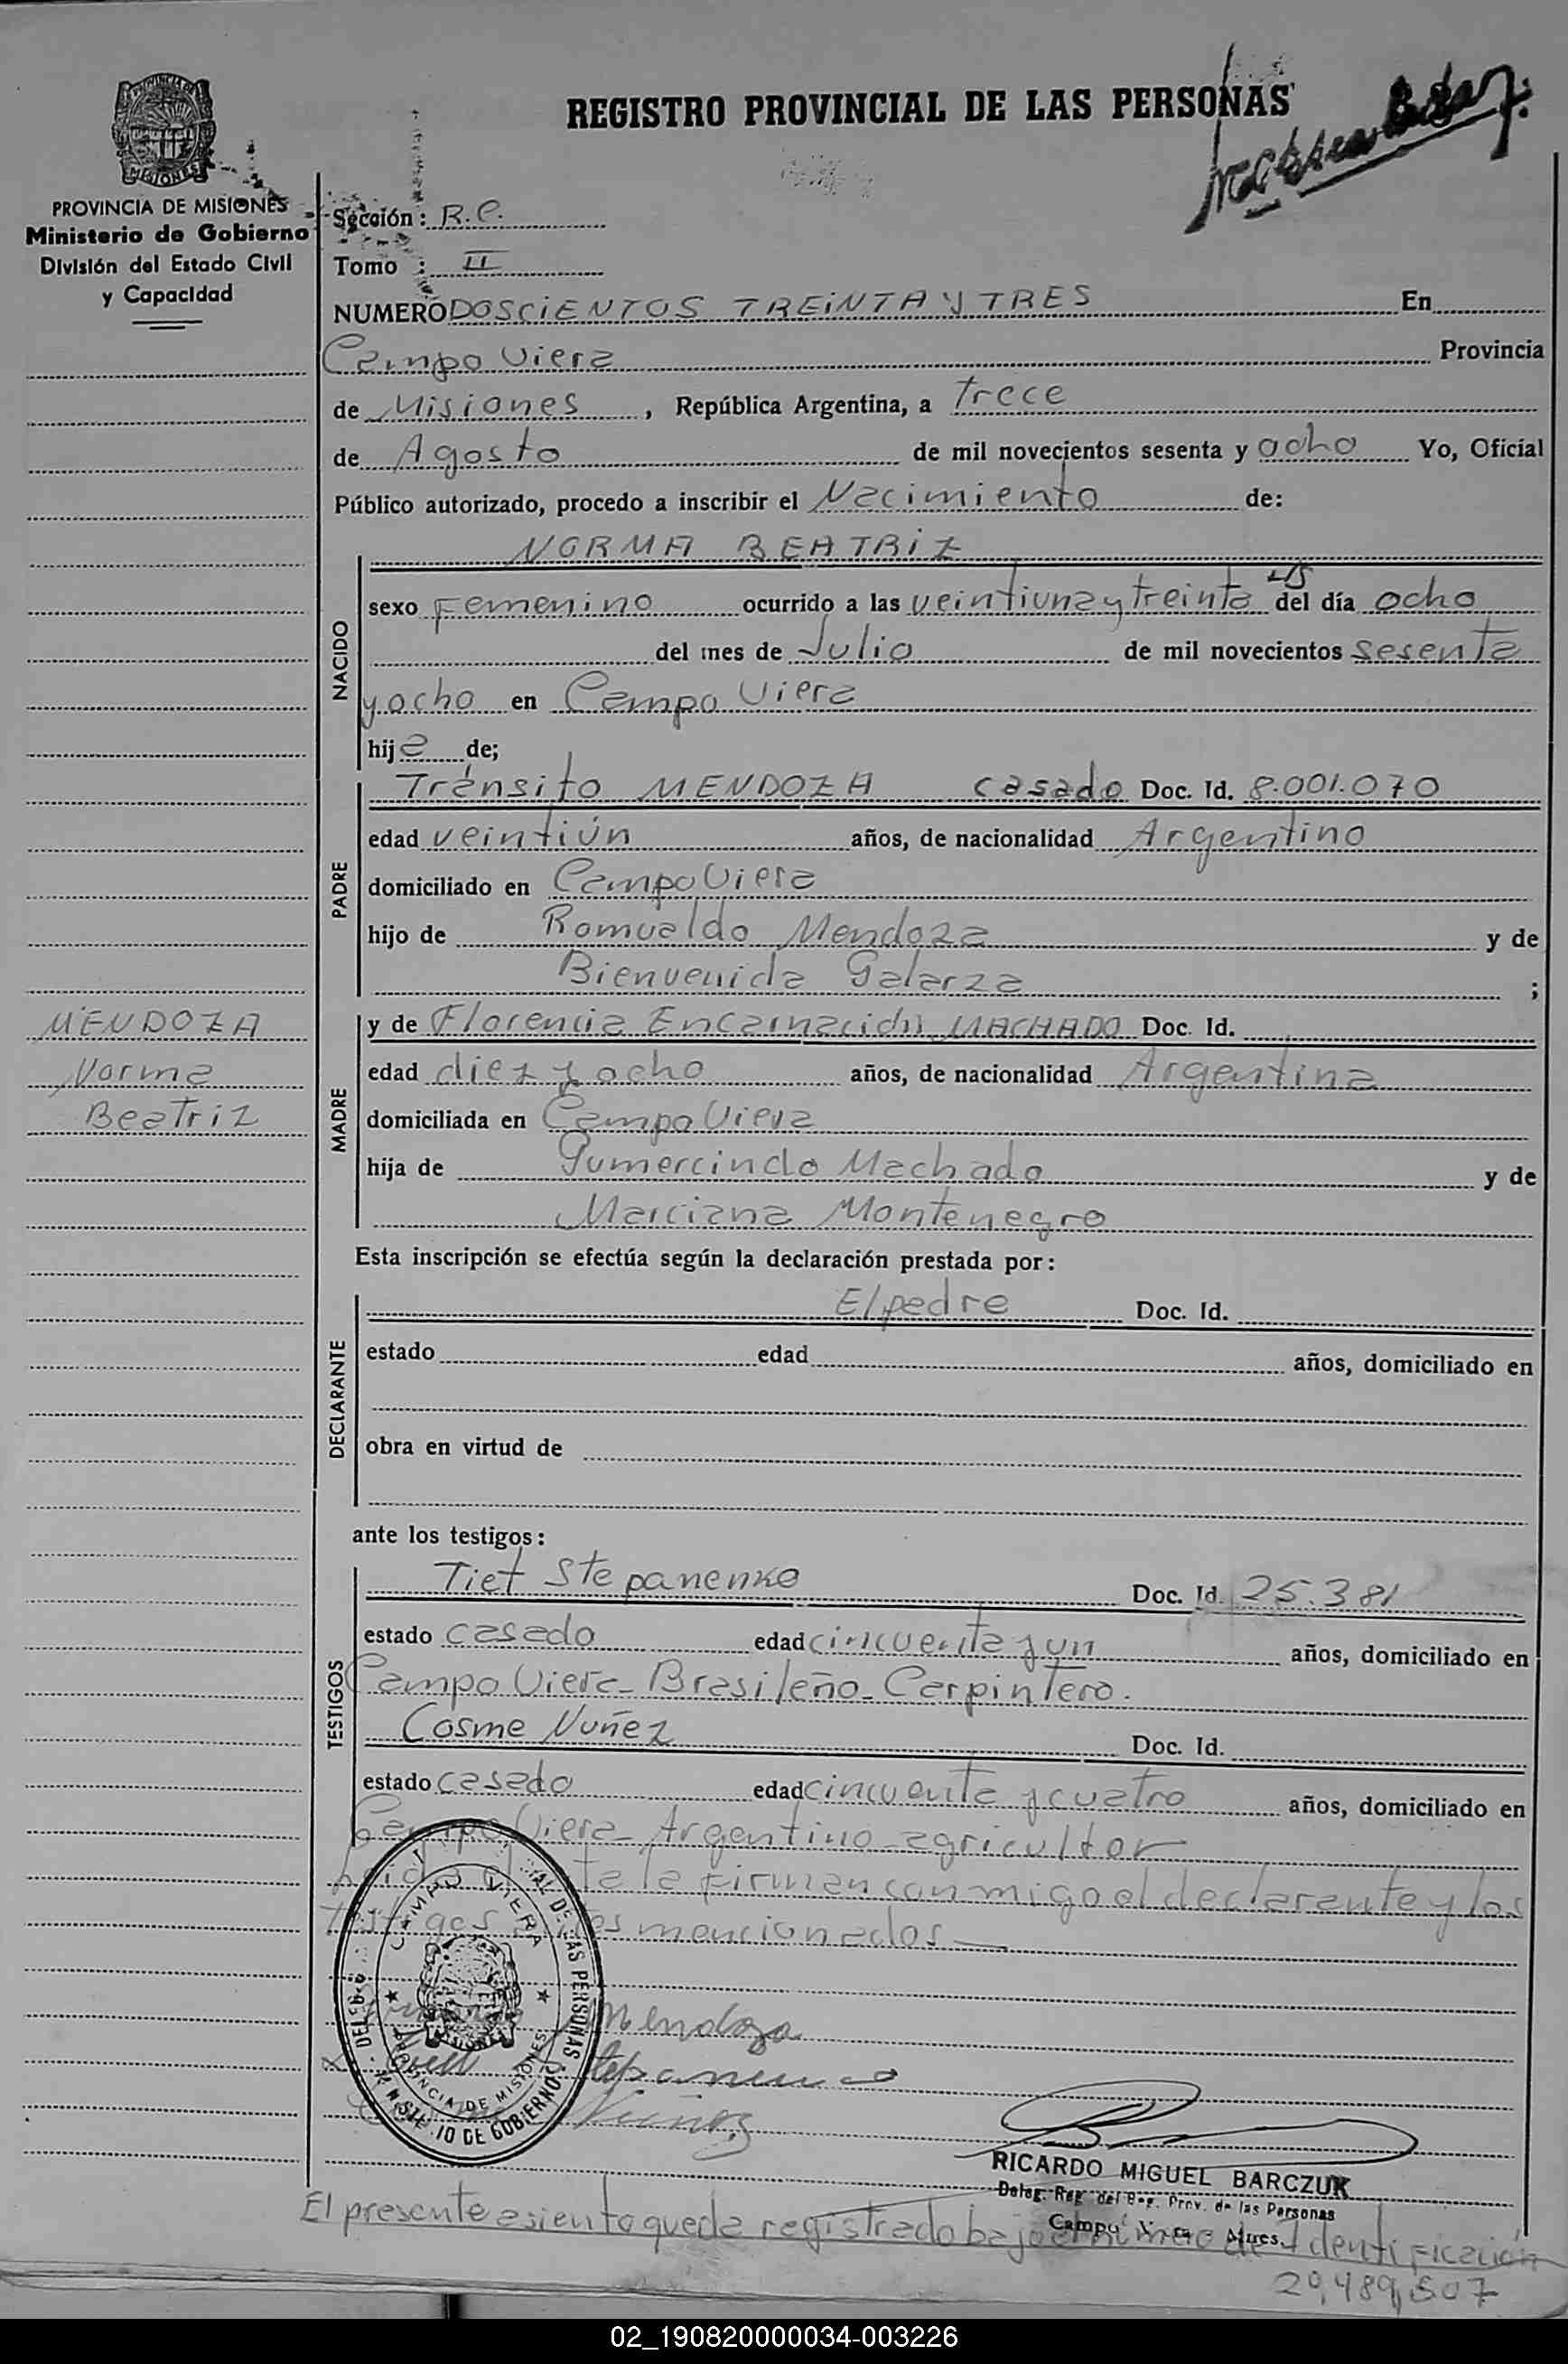 REGISTRO PROVINCIAL DE LAS PERSONAS
PROVINCIA DE MISIONES
Ministerio de Gobierno
División del Estado Civil
y Capacidad
Sección: R.C.
Tomo : II
NUMERO DOSCIENTOS TREINTA Y TRES En
Campo Viera Provincia
de Misiones, República Argentina, a Trece
de Agosto de mil novecientos sesenta y ocho Yo, Oficial
Público autorizado, procedo a inscribir el Nacimiento de:
NORMA BEATRIZ
NACIDO
sexo Femenino ocurrido a las veintiuna y treinta hs del día ocho
del mes de Julio de mil novecientos sesenta
y ocho en Campo Viera
hija de;
PADRE
Tránsito MENDOZA casado Doc. Id. 8.001.070
edad veintiún años, de nacionalidad Argentino
domiciliado en Campo Viera
hijo de Romualdo Mendoza y de
Bienvenida Galarza ;
MENDOZA
Norma
Beatriz
MADRE
y de Florencia Encarnación MACHADO Doc. Id.
edad diez y ocho años, de nacionalidad Argentina
domiciliada en Campo Viera
hija de Gumercindo Machado y de
Marciana Montenegro
Esta inscripción se efectúa según la declaración prestada por:
DECLARANTE
El padre Doc. Id.
estado edad años, domiciliado en
obra en virtud de
ante los testigos:
TESTIGOS
Tiet Stepanenko Doc. Id. 25.381
estado casado edad cincuenta y un años, domiciliado en
Campo Viera - Brasileño - Carpintero.
Cosme Nuñez Doc. Id.
estado casado edad cincuenta y cuatro años, domiciliado en
Campo Viera - Argentino - agricultor
la firman conmigo el declarante y los
testigos mencionados
Mendoza
Stepanenco
Nuñez
CAMPO VIERA
PROVINCIA DE MISIONES
DE LAS PERSONAS
MINISTERIO DE GOBIERNO
RICARDO MIGUEL BARCZUK
Deleg. Reg. del Reg. Prov. de las Personas
Campo Viera Mnes.
El presente asiento queda registrado bajo el número de Identificación
20,489,507
02_190820000034-003226